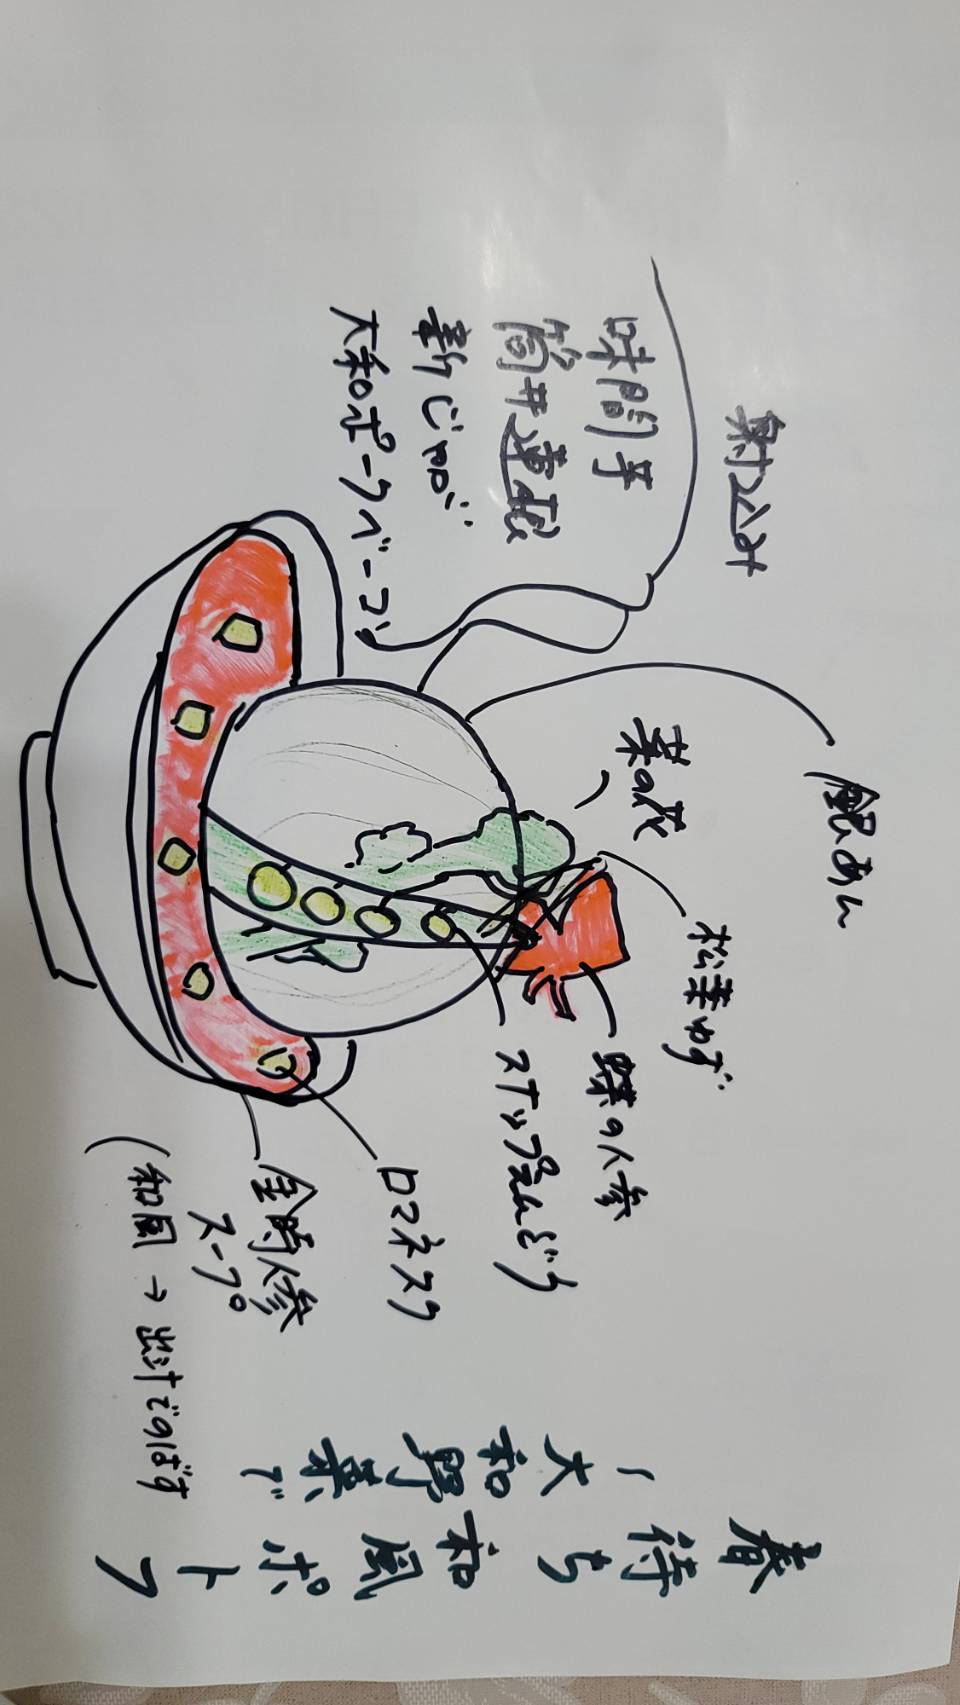 春待ち和風ポトフ
大和野菜で
銀あん
射込み
味間芋
筒井蓮根
新じゃが
大和ポークベーコン
菜の花
松葉ゆず
蝶の人参
スナップえんどう
ロマネスク
金時人参
スープ
(和風→出汁でのばす